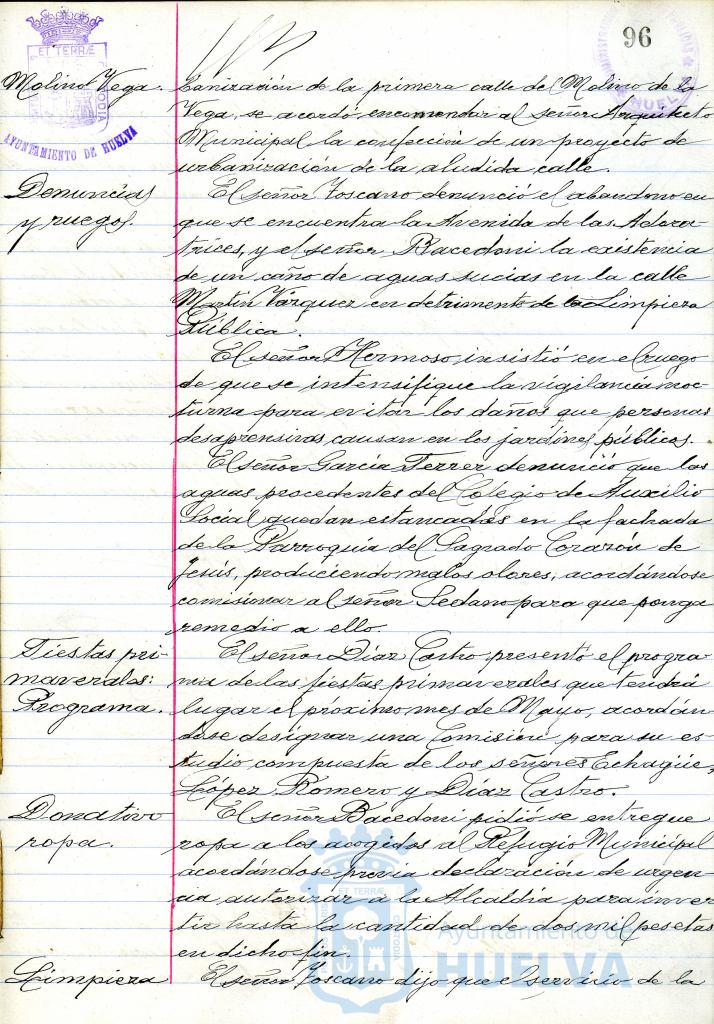 96
ET TERRÆ
AYUNTAMIENTO DE HUELVA
HUELVA
Molino Vega.
banización de la primera calle del Molino de la
Vega, se acordó encomendar al señor Arquitecto
Municipal la confección de un proyecto de
urbanización de la aludida calle.
Denuncias
y ruegos.
El señor Toscano denunció el abandono en
que se encuentra la Avenida de las Adora-
trices, y el señor Bacedoni la existencia
de un caño de aguas sucias en la calle
Martín Vázquez en detrimento de la Limpieza
Pública.
El señor Hermoso insistió en el ruego
de que se intensifique la vigilancia noc-
turna para evitar los daños que personas
desaprensivas causan en los jardines públicos.
El señor García Ferrer denunció que las
aguas procedentes del Colegio de Auxilio
Social quedan estancadas en la fachada
de la Parroquia del Sagrado Corazón de
Jesús, produciendo malos olores, acordándose
comisionar al señor Sedano para que ponga
remedio a ello.
Fiestas pri-
maverales:
Programa.
El señor Díaz Castro presentó el progra-
ma de las fiestas primaverales que tendrá
lugar el próximo mes de Mayo, acordán-
dose designar una Comisión para su es-
tudio compuesta de los señores Echagüe,
López Romero y Díaz Castro.
Donativo
ropa.
El señor Bacedoni pidió se entregue
ropa a los acogidos al Refugio Municipal
acordándose previa declaración de urgen-
cia, autorizar a la Alcaldía para inver-
tir hasta la cantidad de dos mil pesetas
en dicho fin.
Limpieza
El señor Toscano dijo que el servicio de la
ET TERRÆ
CUSTODIA
Ayuntamiento de
HUELVA